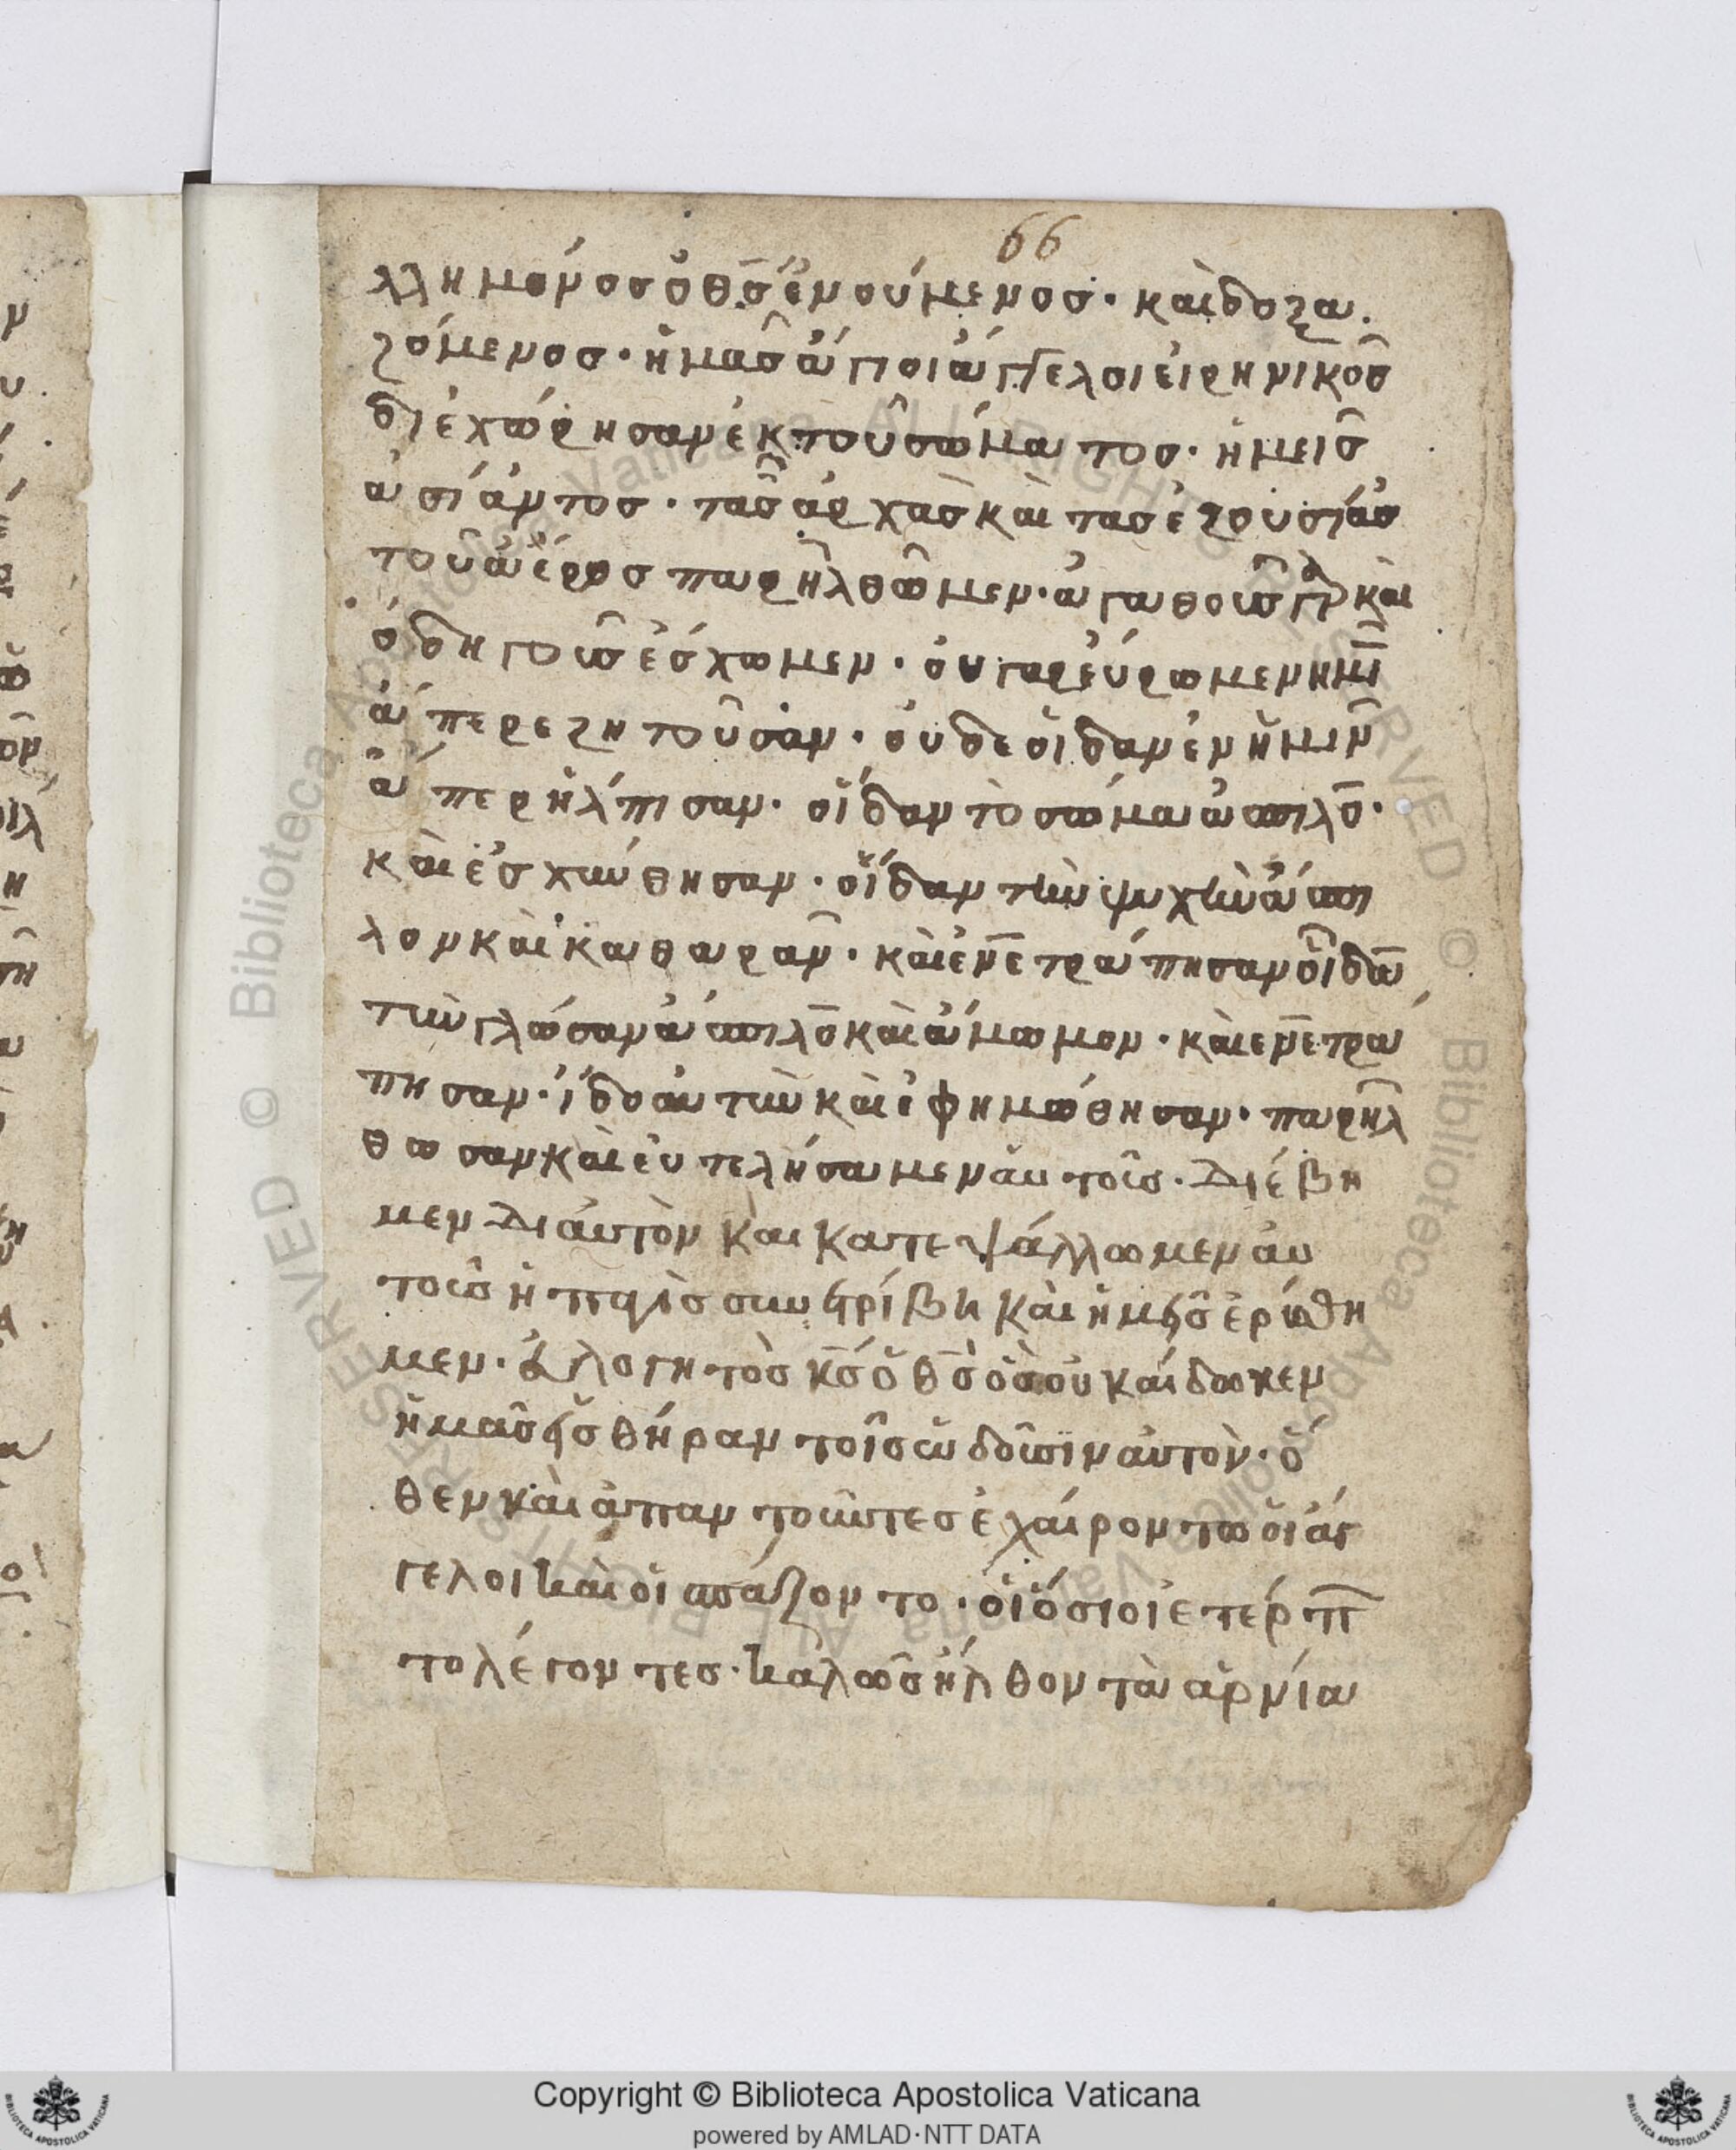 66
λλημένοσ ὁ θσ ἐνούμενοσ · καὶ δοξα
ζόμενοσ · ἡμᾶσ ἅγιοι ἄγγελοι εἰρηνικοσ
διεχώρησαν ἐκ τοῦ σώματοσ · ἡμεῖσ
ἀσίαντοσ · τασ ἀρχὰσ καὶ τασ ἐξουσίασ
τοῦ ἀέροσ παρῆλθωμεν · ἀγαθουσ γὰρ καὶ
ὁδηγουσ ἐσχωμεν · οὐ γαρ εὕρωμεν ημῖ
ἅπερ εζητοῦσαν · οὐδε οἶδαν ἐν ἡμῖν
ἅπερ ἤλπισαν · οἶδαν τὸ σώμα ἄσπιλο ·
καὶ ἐσχύνθησαν · οἶδαν τὴν ψυχὴν ἄσπι
λον καὶ καθαραν · καὶ ἐνετράπησαν οἶδα
τὴν γλώσαν ἄσπιλο καὶ ἄμωμον · καὶ ενετρά
πησαν · ἴδοαν τὴν καὶ ἐφημώθησαν · παρῆλ
θωσαν καὶ εὐτελήσαμεν αυτοῖσ · Διέβη
μεν Δι αὐτὸν καὶ κατεψάλλωμεν αυ
τουσ ἡ παγὶσ συνετρίβη καὶ ἡμεῖσ ἐρύσθη
μεν · Εὐλογητὸσ κσ ὁ θσ ὁσ οὐκ αί δωκεν
ἡμᾶσ εἰσ θήραν τοῖσ ὠδοῦσιν αὐτὸν · ὅ
θεν καὶ ἀπαντοῦντεσ ἐχαίρον τω οἱ ἀγ
γελοι καὶ οἱ ασπάζον το · οἱ ὅσιοι ετέρπ
το λέγοντεσ · καλῶσ ἤλθον τὰ ἀρνία
Copyright © Biblioteca Apostolica Vaticana
powered by AMLAD·NTT DATA